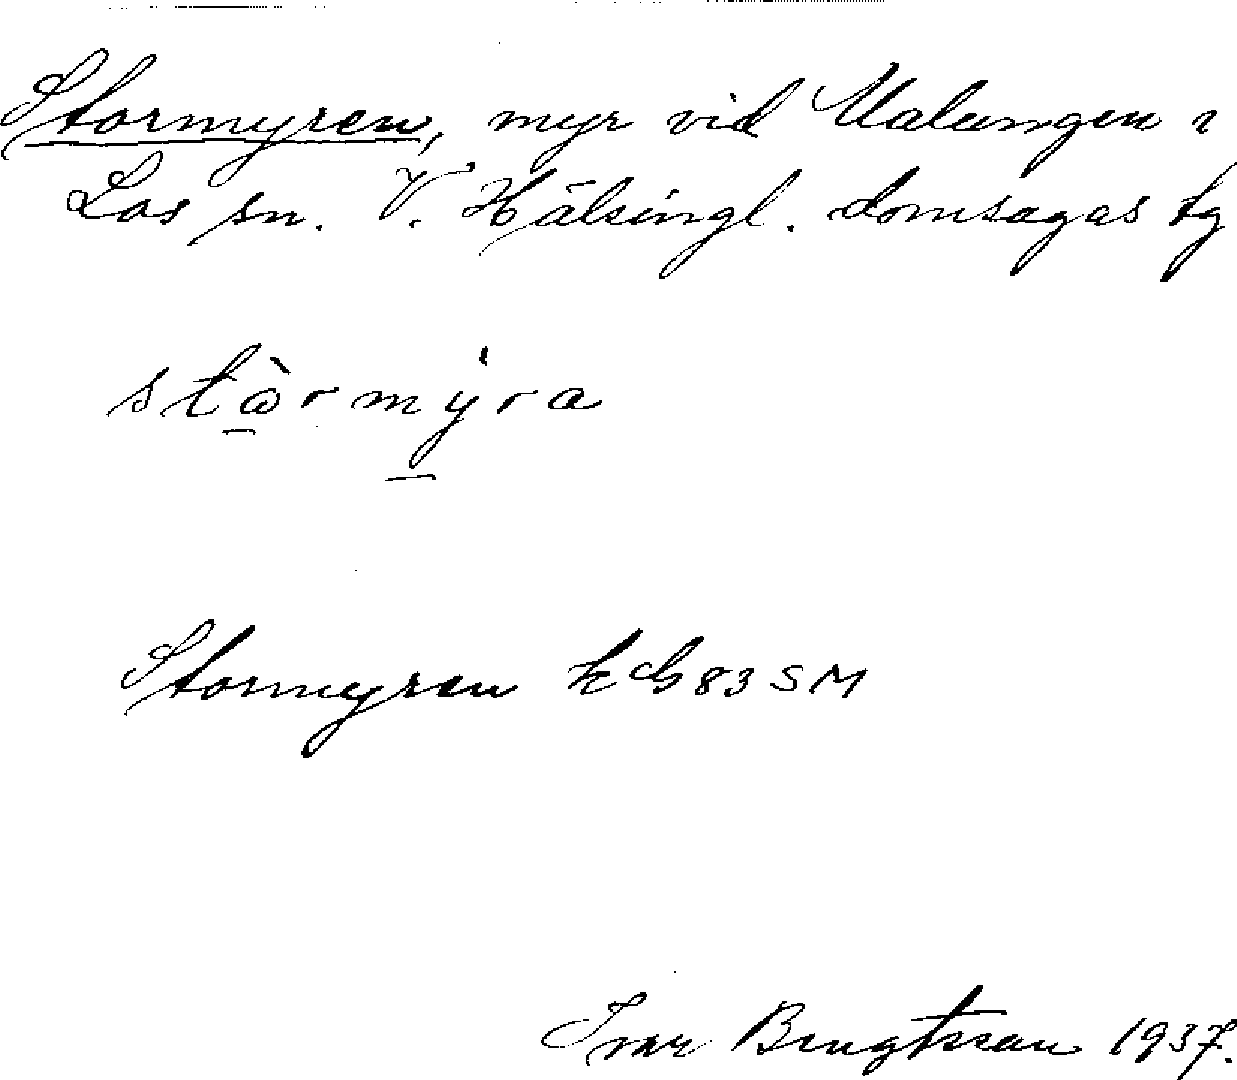 Stormyren, myr vid Malungen i
Los sn. V. Hälsingl. domsagas tg
stòrmýra
Stormyren k G 83 SM
Ivar Bengtsson 1937.